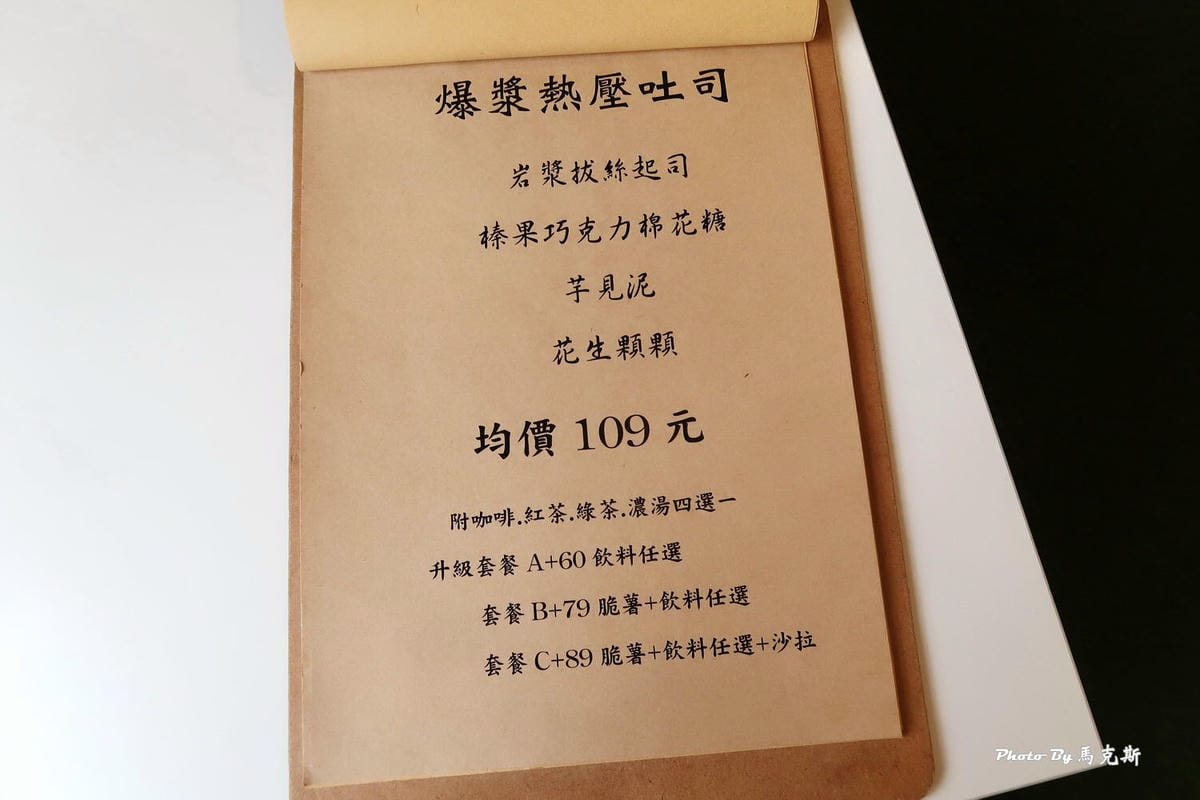 爆漿熱壓吐司
岩漿拔絲起司
榛果巧克力棉花糖
芋見泥
花生顆顆
均價 109 元
附咖啡.紅茶.綠茶.濃湯四選一
升級套餐 A+60 飲料任選
套餐 B+79 脆薯+飲料任選
套餐 C+89 脆薯+飲料任選+沙拉
Photo By 馬克斯